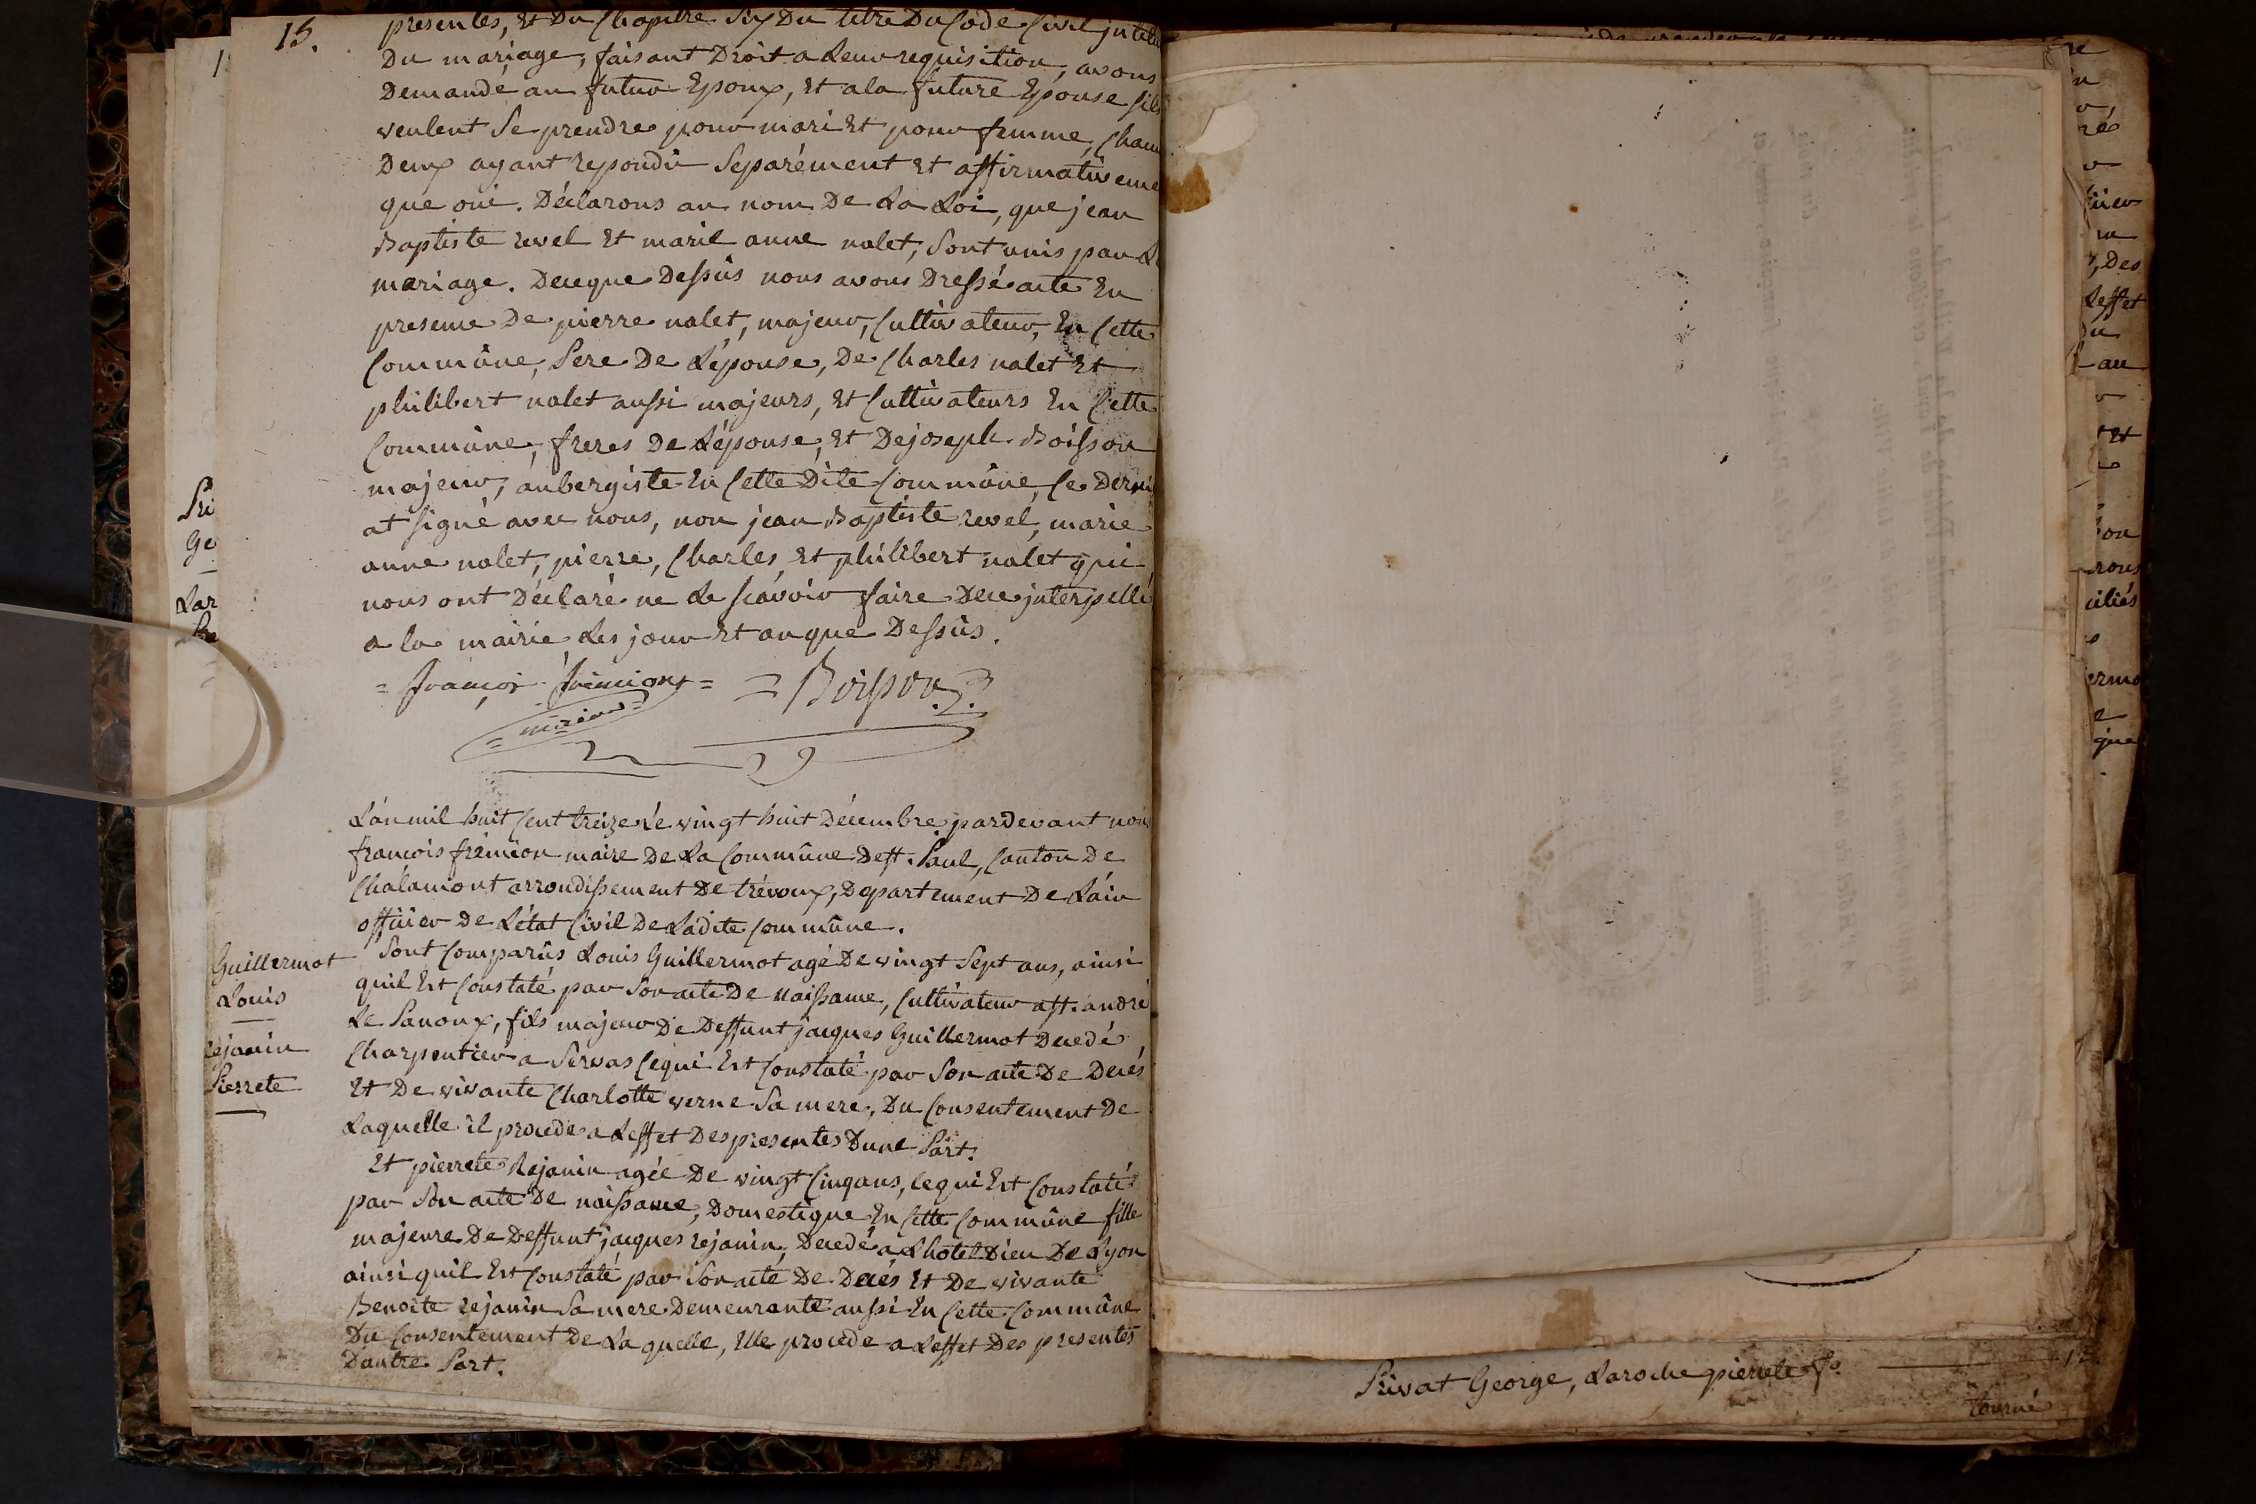 15.
presentes, Et Du Chapitre Six Du titre Du Code Civil jntitu
Du mariage, faisant Droit a Leur requisition, avons
Demandé au futur Epoux, Et a la future Epouse sils
veulent Se prendre pour mari Et pour femme, Chacu
Deux ayant repondu Separément Et affirmativeme
que oui. Déclarons au nom De La Loi, que jean
Baptiste revel Et marie anne nalet, Sont unis par Le
mariage. Dece que Dessûs nous avons Dressé acte En
presence De pierre nalet, majeur, Cultivateur, En Cette
Commûne, Pere De Lépouse, De Charles nalet Et
philibert nalet aussi majeurs, Et Cultivateurs En Cette
Commûne, freres De Lépouse, Et De joseph Boisson
majeur, aubergiste En Cette Dite Commûne, Ce Derni
at signé avec nous, non jean Baptiste revel, marie
anne nalet, pierre, Charles, Et philibert nalet qui
nous ont Déclaré ne Le scavoir faire Dece jnterpellé
a la mairie Les jour Et an que Dessûs.
= françois fremion = = Boisson
= maire =
Lán mil huit Cent treize Le vingt huit Décembre pardevant nous
françois frémion maire De La Commûne De St. Paul, Canton De
Chalamont arrondissement De trévoux, Departement De Láin
officier De Létat Civil De Ladite Commûne.
Guillermot
Louis
rejanin
Pierrete
Sont Comparûs Louis Guillermot agé De vingt Sept ans, ainsi
quil Est Constaté par Son acte De naissance, Cultivateur a St. andré
Le Panoux, fils majeur De Deffunt jacques Guillermot Decedé
Charpentier a Servas Cequi Est Constaté par Son acte De Decés
Et De vivante Charlotte verne Sa mere, Du Consentement De
Laquelle il procede a Leffet Des presentes Dune Part.
Et pierrete Rejanin agée De vingt Cinq ans, Ce qui Est Constaté
par Son acte De naissance, Domestique En Cette Commûne fille
majeure De Deffunt jacques rejanin, Decedé a Lhotel Dieu De Lyon
ainsi quil Est Constaté par Son acte De Decés Et De vivante
Benoite rejanin Sa mere Demeurante aussi En Cette Commûne
Du Consentement De Laquelle, Elle procede a Leffet Des presentes
Dautre Part.
Privat George, Laroche pierrete
tourné